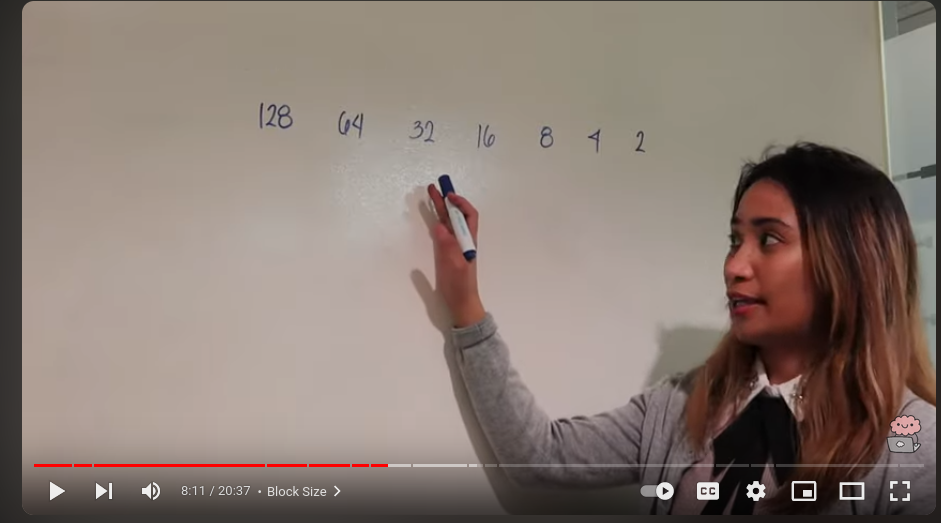 128 64 32 16 8 4 2
8:11 / 20:37 • Block Size
CC